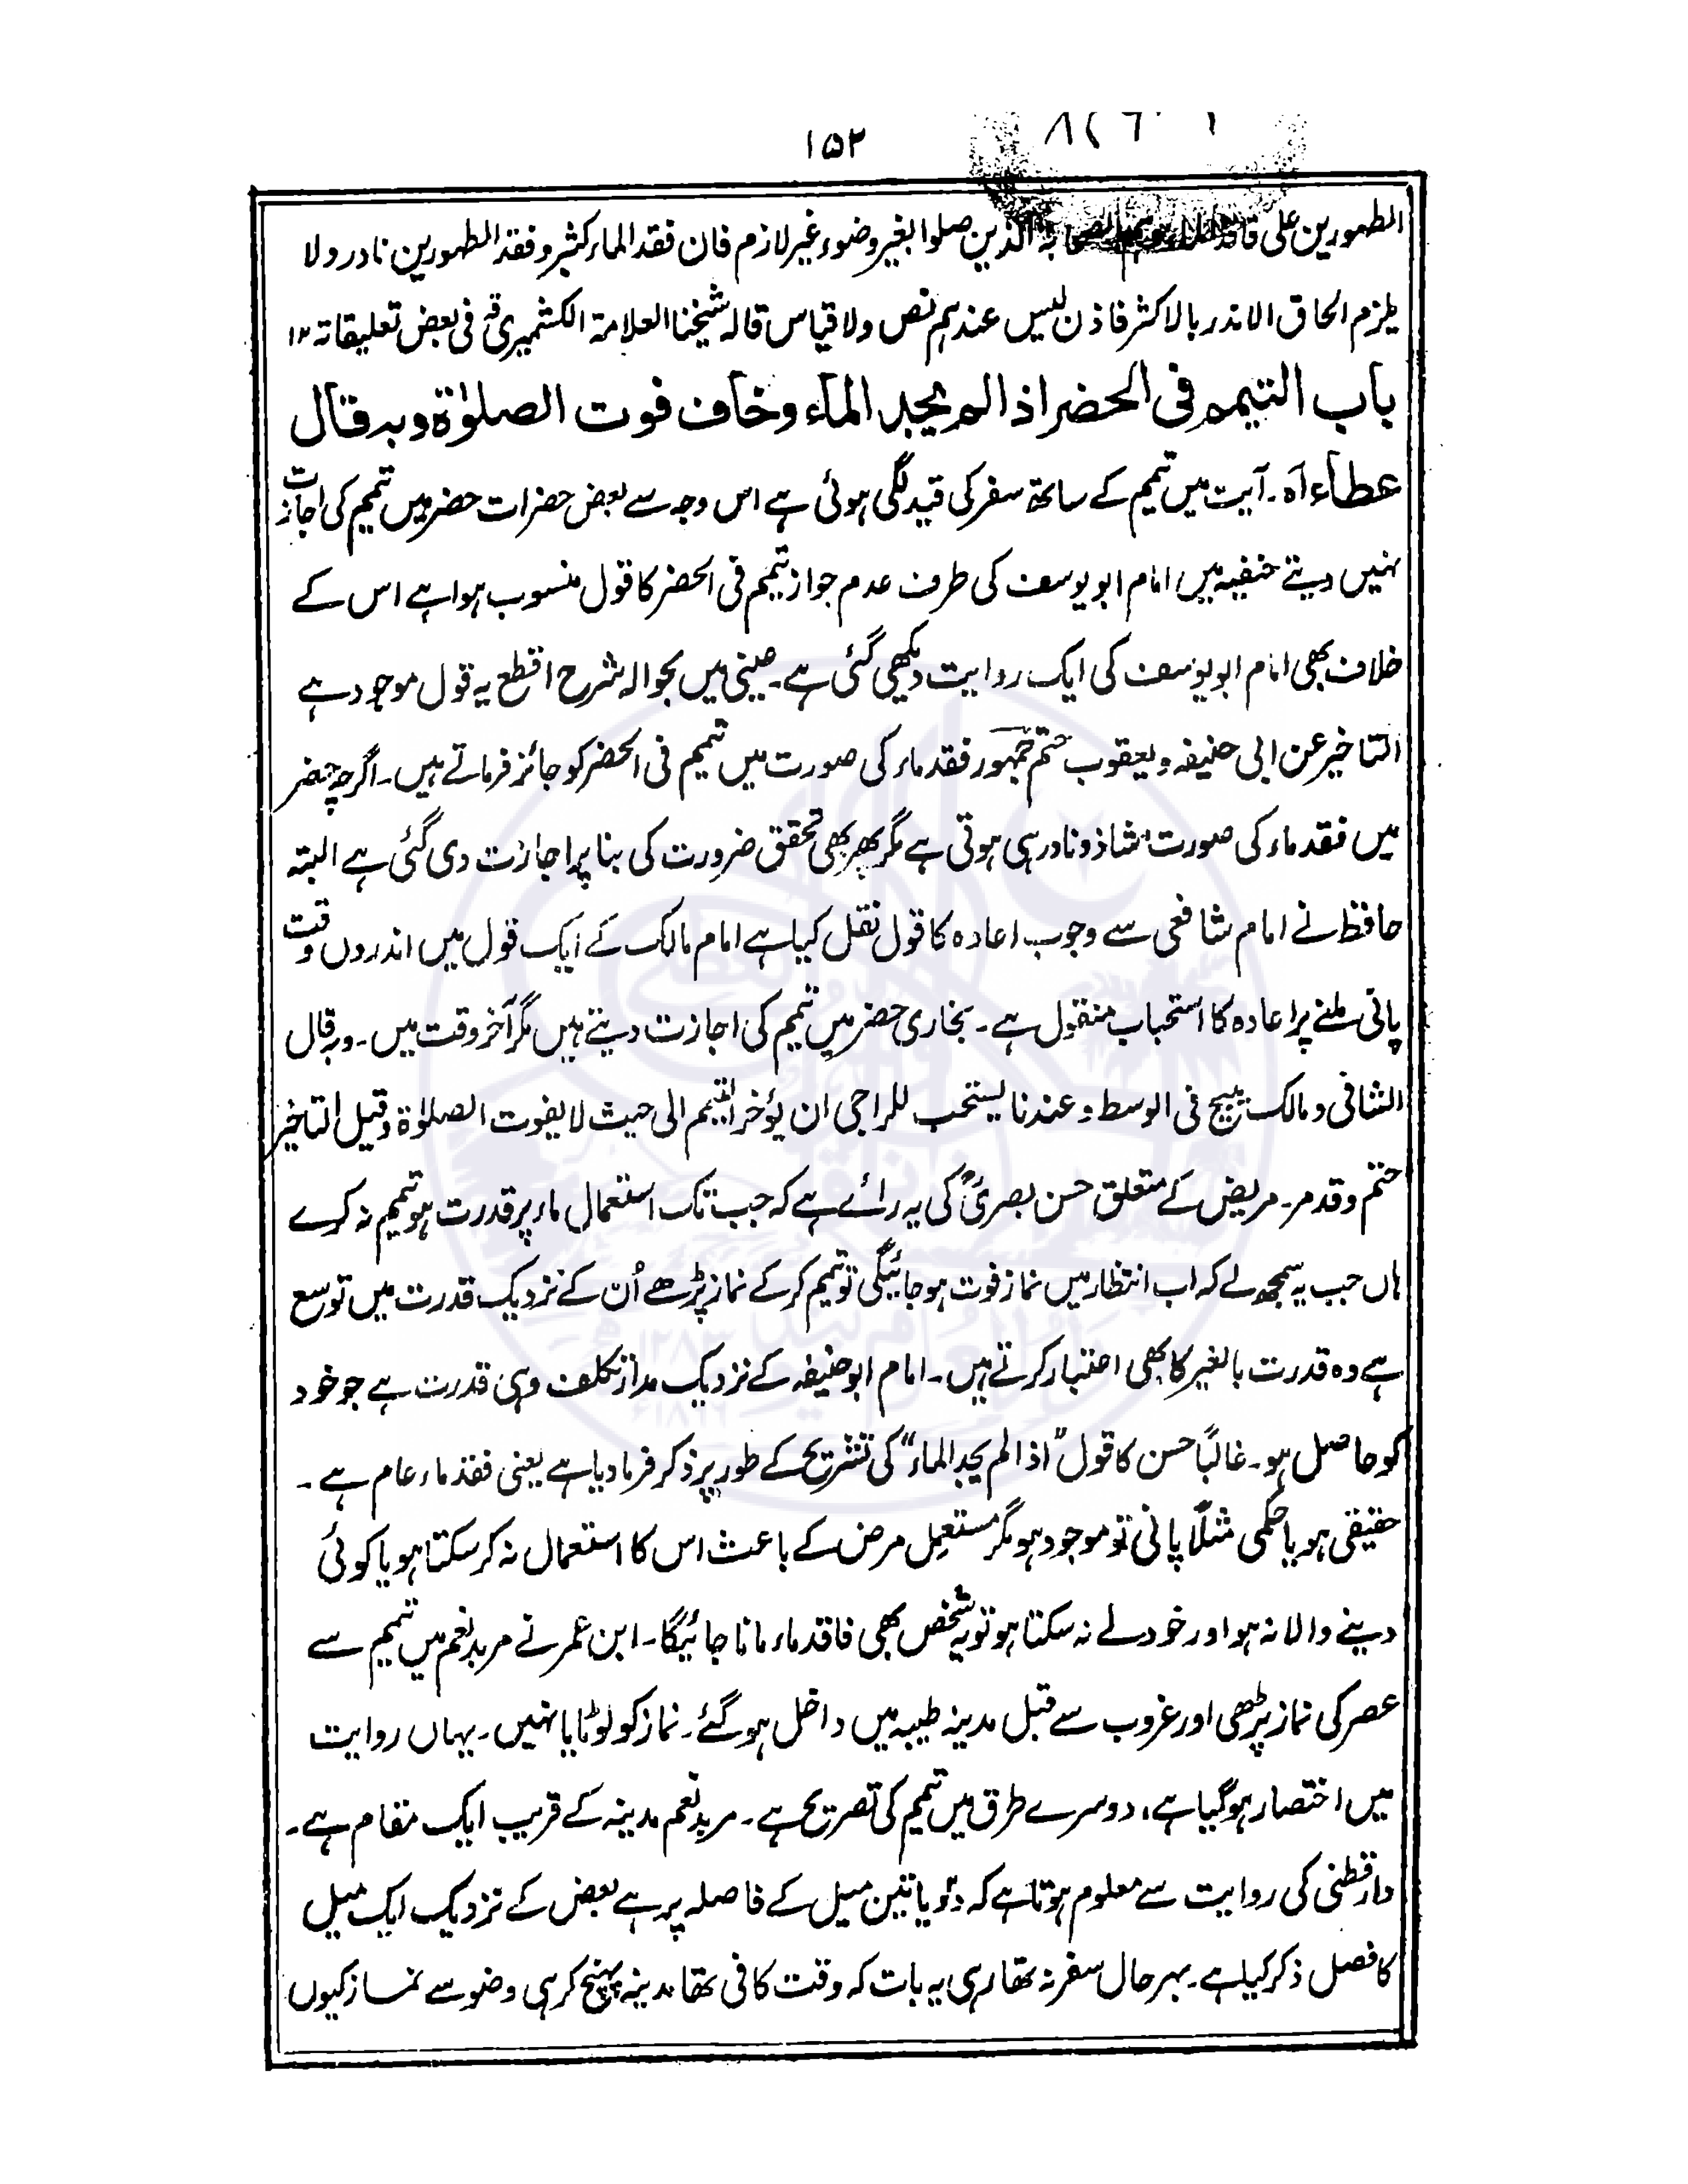 ۱۵۲
المطہورین علی فاقد الصحابہ الذین صلوا بغیر وضوء غیر لازم فان فقد الماء کثیر و فقد المطہورین نادر ولا
یلزم الحاق الاندر بالاکثر فاذن لیس عندہم نص ولا قیاس قالہ شیخنا العلامۃ الکشمیری فی بعض تعلیقاتہ ۱۲
باب التیمم فی الحضر اذا لم یجد الماء وخاف فوت الصلوٰۃ وبہ قال
عطاء اٰہ۔ آیت میں تیمم کے ساتھ سفر کی قید لگی ہوئی ہے اس وجہ سے بعض حضرات حضر میں تیمم کی اجازت
نہیں دیتے حنفیہ میں امام ابو یوسف کی طرف عدم جواز تیمم فی الحضر کا قول منسوب ہوا ہے اس کے
خلاف بھی امام ابو یوسف کی ایک روایت دیکھی گئی ہے۔ عینی میں بحوالہ شرح اقطع یہ قول موجود ہے
التاخیر عن ابی حنیفہ و یعقوب حتم جمہور فقد ماء کی صورت میں تیمم فی الحضر کو جائز فرماتے ہیں۔ اگرچہ حضر
میں فقد ماء کی صورت شاذ و نادر ہی ہوتی ہے مگر پھر بھی تحقق ضرورت کی بنا پر اجازت دی گئی ہے البتہ
حافظ نے امام شافعی سے وجوب اعادہ کا قول نقل کیا ہے امام مالک کے ایک قول میں اندرون وقت
پانی ملنے پر اعادہ کا استحباب منقول ہے۔ بخاری حضر میں تیمم کی اجازت دیتے ہیں مگر آخر وقت میں۔ وبہ قال
الشافی و مالک یبیح فی الوسط و عندنا یستحب للراجی ان یؤخر التیمم الی حیث لا یفوت الصلوٰۃ وقیل التاخیر
حتم وقد مر۔ مریض کے متعلق حسن بصریؒ کی یہ رائے ہے کہ جب تک استعمال ماء پر قدرت ہو تیمم نہ کرے
ہاں جب یہ سمجھ لے کہ اب انتظار میں نماز فوت ہو جائیگی تو تیمم کر کے نماز پڑھے اُن کے نزدیک قدرت میں توسع
ہے وہ قدرت بالغیر کا بھی اعتبار کرتے ہیں۔ امام ابو حنیفہ کے نزدیک مدار تکلف وہی قدرت ہے جو خود
کو حاصل ہو۔ غالباً حسن کا قول "اذا لم یجد الماء" کی تشریح کے طور پر ذکر فرما دیا ہے یعنی فقد ماء عام ہے۔
حقیقی ہو یا حکمی مثلاً پانی تو موجود ہو مگر مستعمِل مرض کے باعث اس کا استعمال نہ کر سکتا ہو یا کوئی
دینے والا نہ ہو اور خود لے نہ سکتا ہو تو یہ شخص بھی فاقد ماء مانا جائیگا۔ ابن عمر نے مربد نعم میں تیمم سے
عصر کی نماز پڑھی اور غروب سے قبل مدینہ طیبہ میں داخل ہو گئے۔ نماز کو لوٹایا نہیں۔ یہاں روایت
میں اختصار ہو گیا ہے، دوسرے طرق میں تیمم کی تصریح ہے۔ مربد نعم مدینہ کے قریب ایک مقام ہے۔
دارقطنی کی روایت سے معلوم ہوتا ہے کہ دو یا تین میل کے فاصلہ پر ہے بعض کے نزدیک ایک میل
کا فصل ذکر کیا ہے۔ بہرحال سفر نہ تھا رہی یہ بات کہ وقت کافی تھا مدینہ پہنچ کر ہی وضو سے نماز کیوں